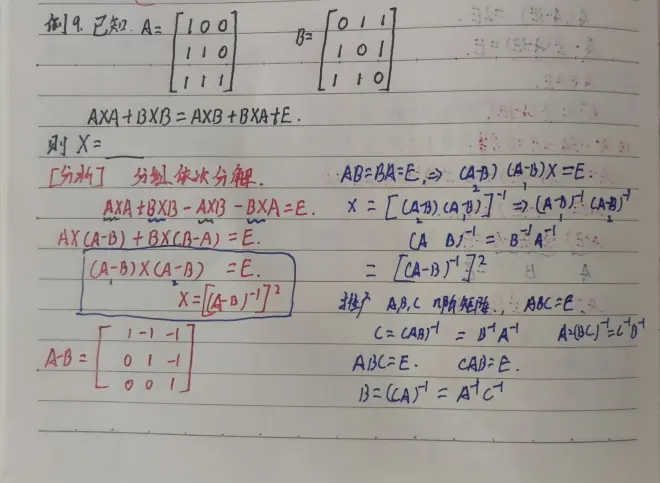 例9. 已知. A = [1 0 0
1 1 0
1 1 1]
B = [0 1 1
1 0 1
1 1 0]
AXA + BXB = AXB + BXA + E.
则 X = ____
[分析] 分组.依次分解.
AXA + BXB - AXB - BXA = E.
AX(A-B) + BX(B-A) = E.
(A-B)X(A-B) = E.
1 2
X = [(A-B)⁻¹]²
A-B = [1 -1 -1
0 1 -1
0 0 1]
AB = BA = E. ⇒ (A-B)(A-B)X = E.
2 1
X = [(A-B)(A-B)]⁻¹ ⇒ (A-B)⁻¹(A-B)⁻¹
2 1
(A B)⁻¹ = B⁻¹A⁻¹
= [(A-B)⁻¹]²
推广 A,B,C n阶矩阵, ABC = E.
C = (AB)⁻¹ = B⁻¹A⁻¹ A = (BC)⁻¹ = C⁻¹B⁻¹
ABC = E. CAB = E.
B = (CA)⁻¹ = A⁻¹C⁻¹